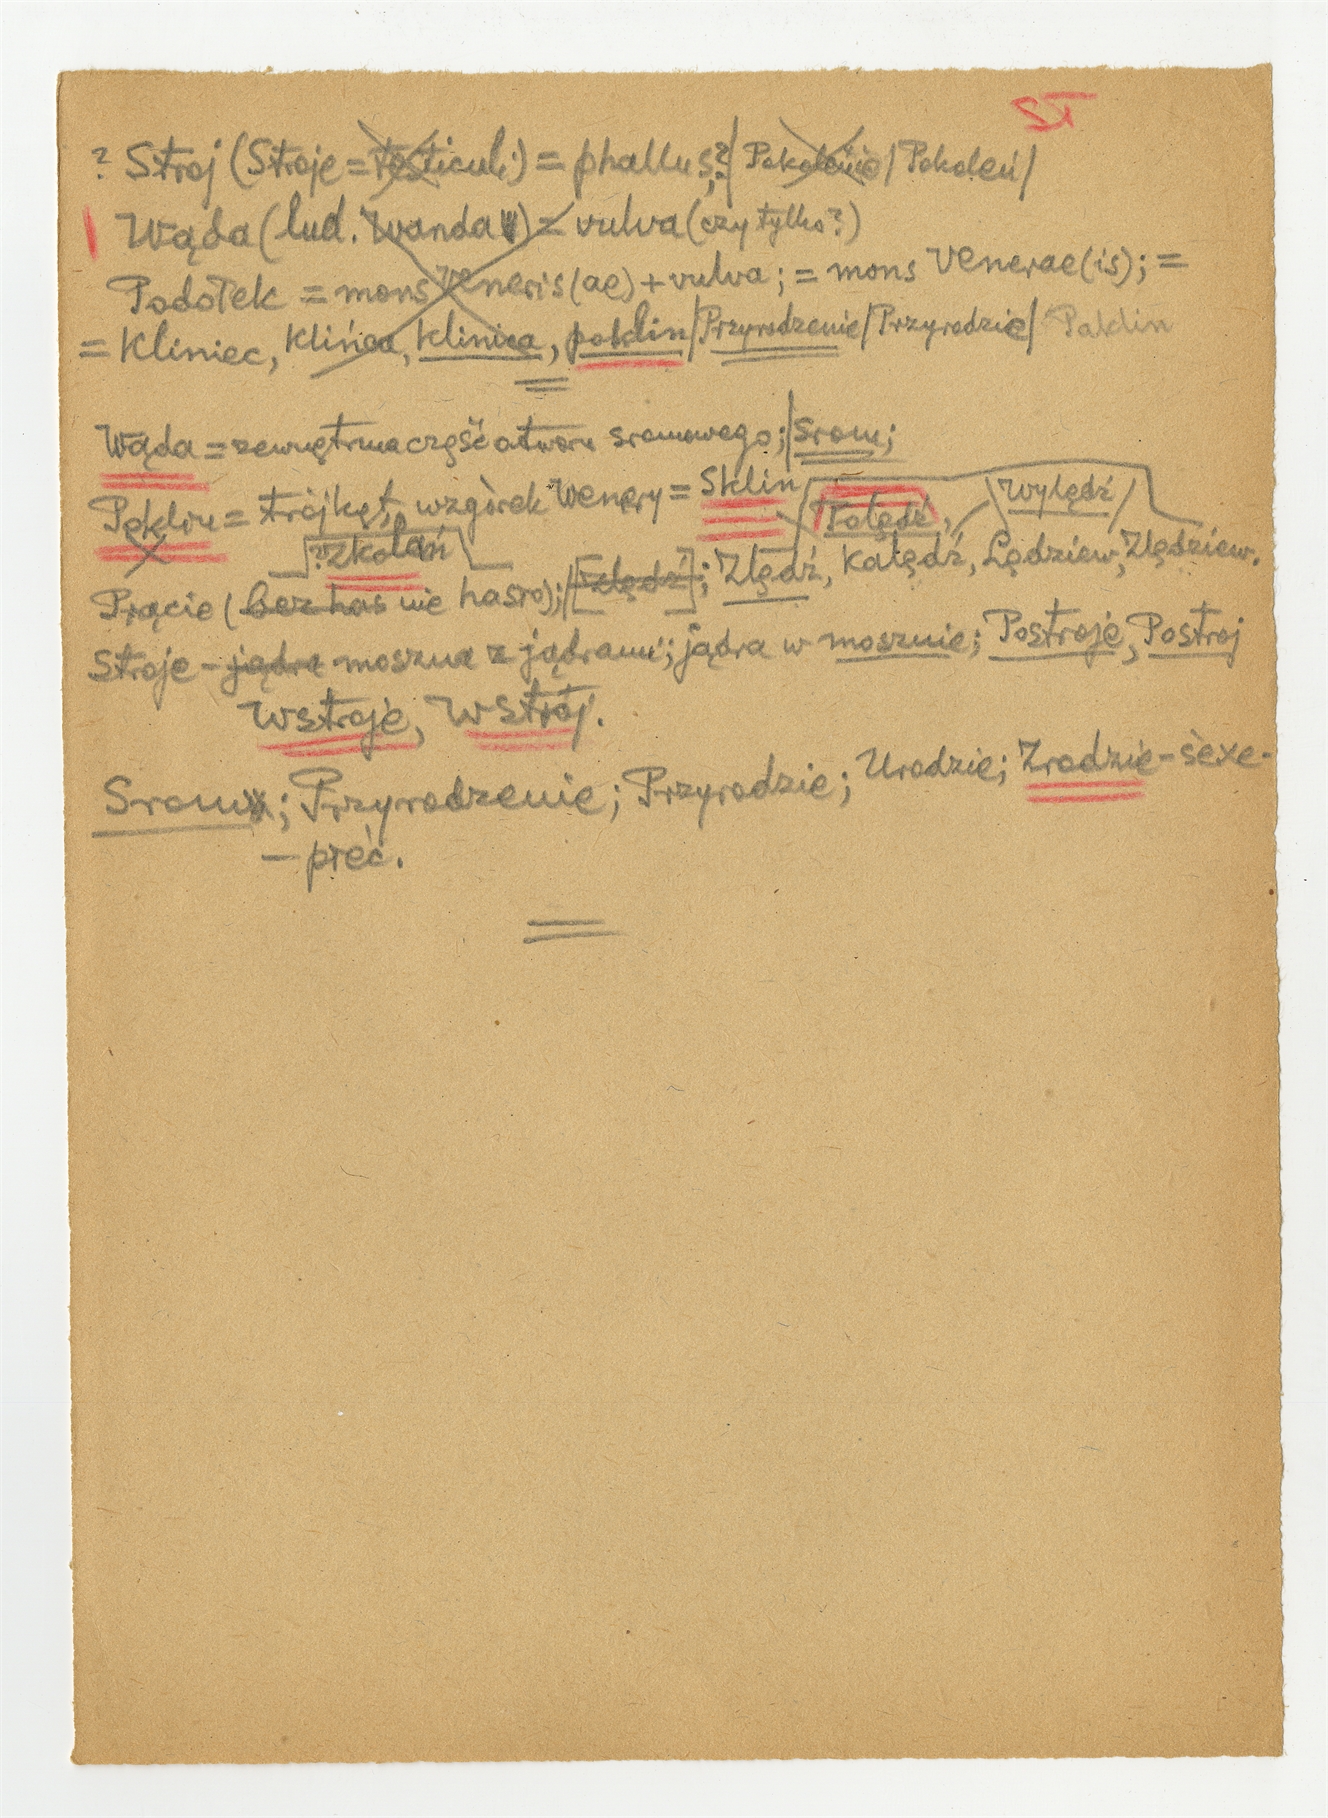 ST
? Stroj (Stroje = testiculi) = phallus;?/ Pokolenie / Pokoleń /
Wąda (lud. Wanda) = vulva (czy tylko?)
Podołek = mons Veneris (ae) + vulva; = mons Venerae (is); =
= Kliniec, Klińca, klinica, poklin / Przyrodzenie / Przyrodzie / Paklin
Wąda = zewnętrzna część otworu sromowego; / srom;
Pęklin = trójkąt, wzgórek Wenery = Sklin
Tolędź, / Wylędź /
?Zkoleń
Prącie (bez has nie hasło); / [Zlędź]; Złędź, Kałędź, Lędziew, Zlędziew.
Stroje – jądra moszna z jądrami; jądra w mosznie; Postroje, Postroj
Wstroje, Wstrój.
Srom; Przyrodzenie; Przyrodzie; Urodzie; Zrodzie – sexe –
– płeć.